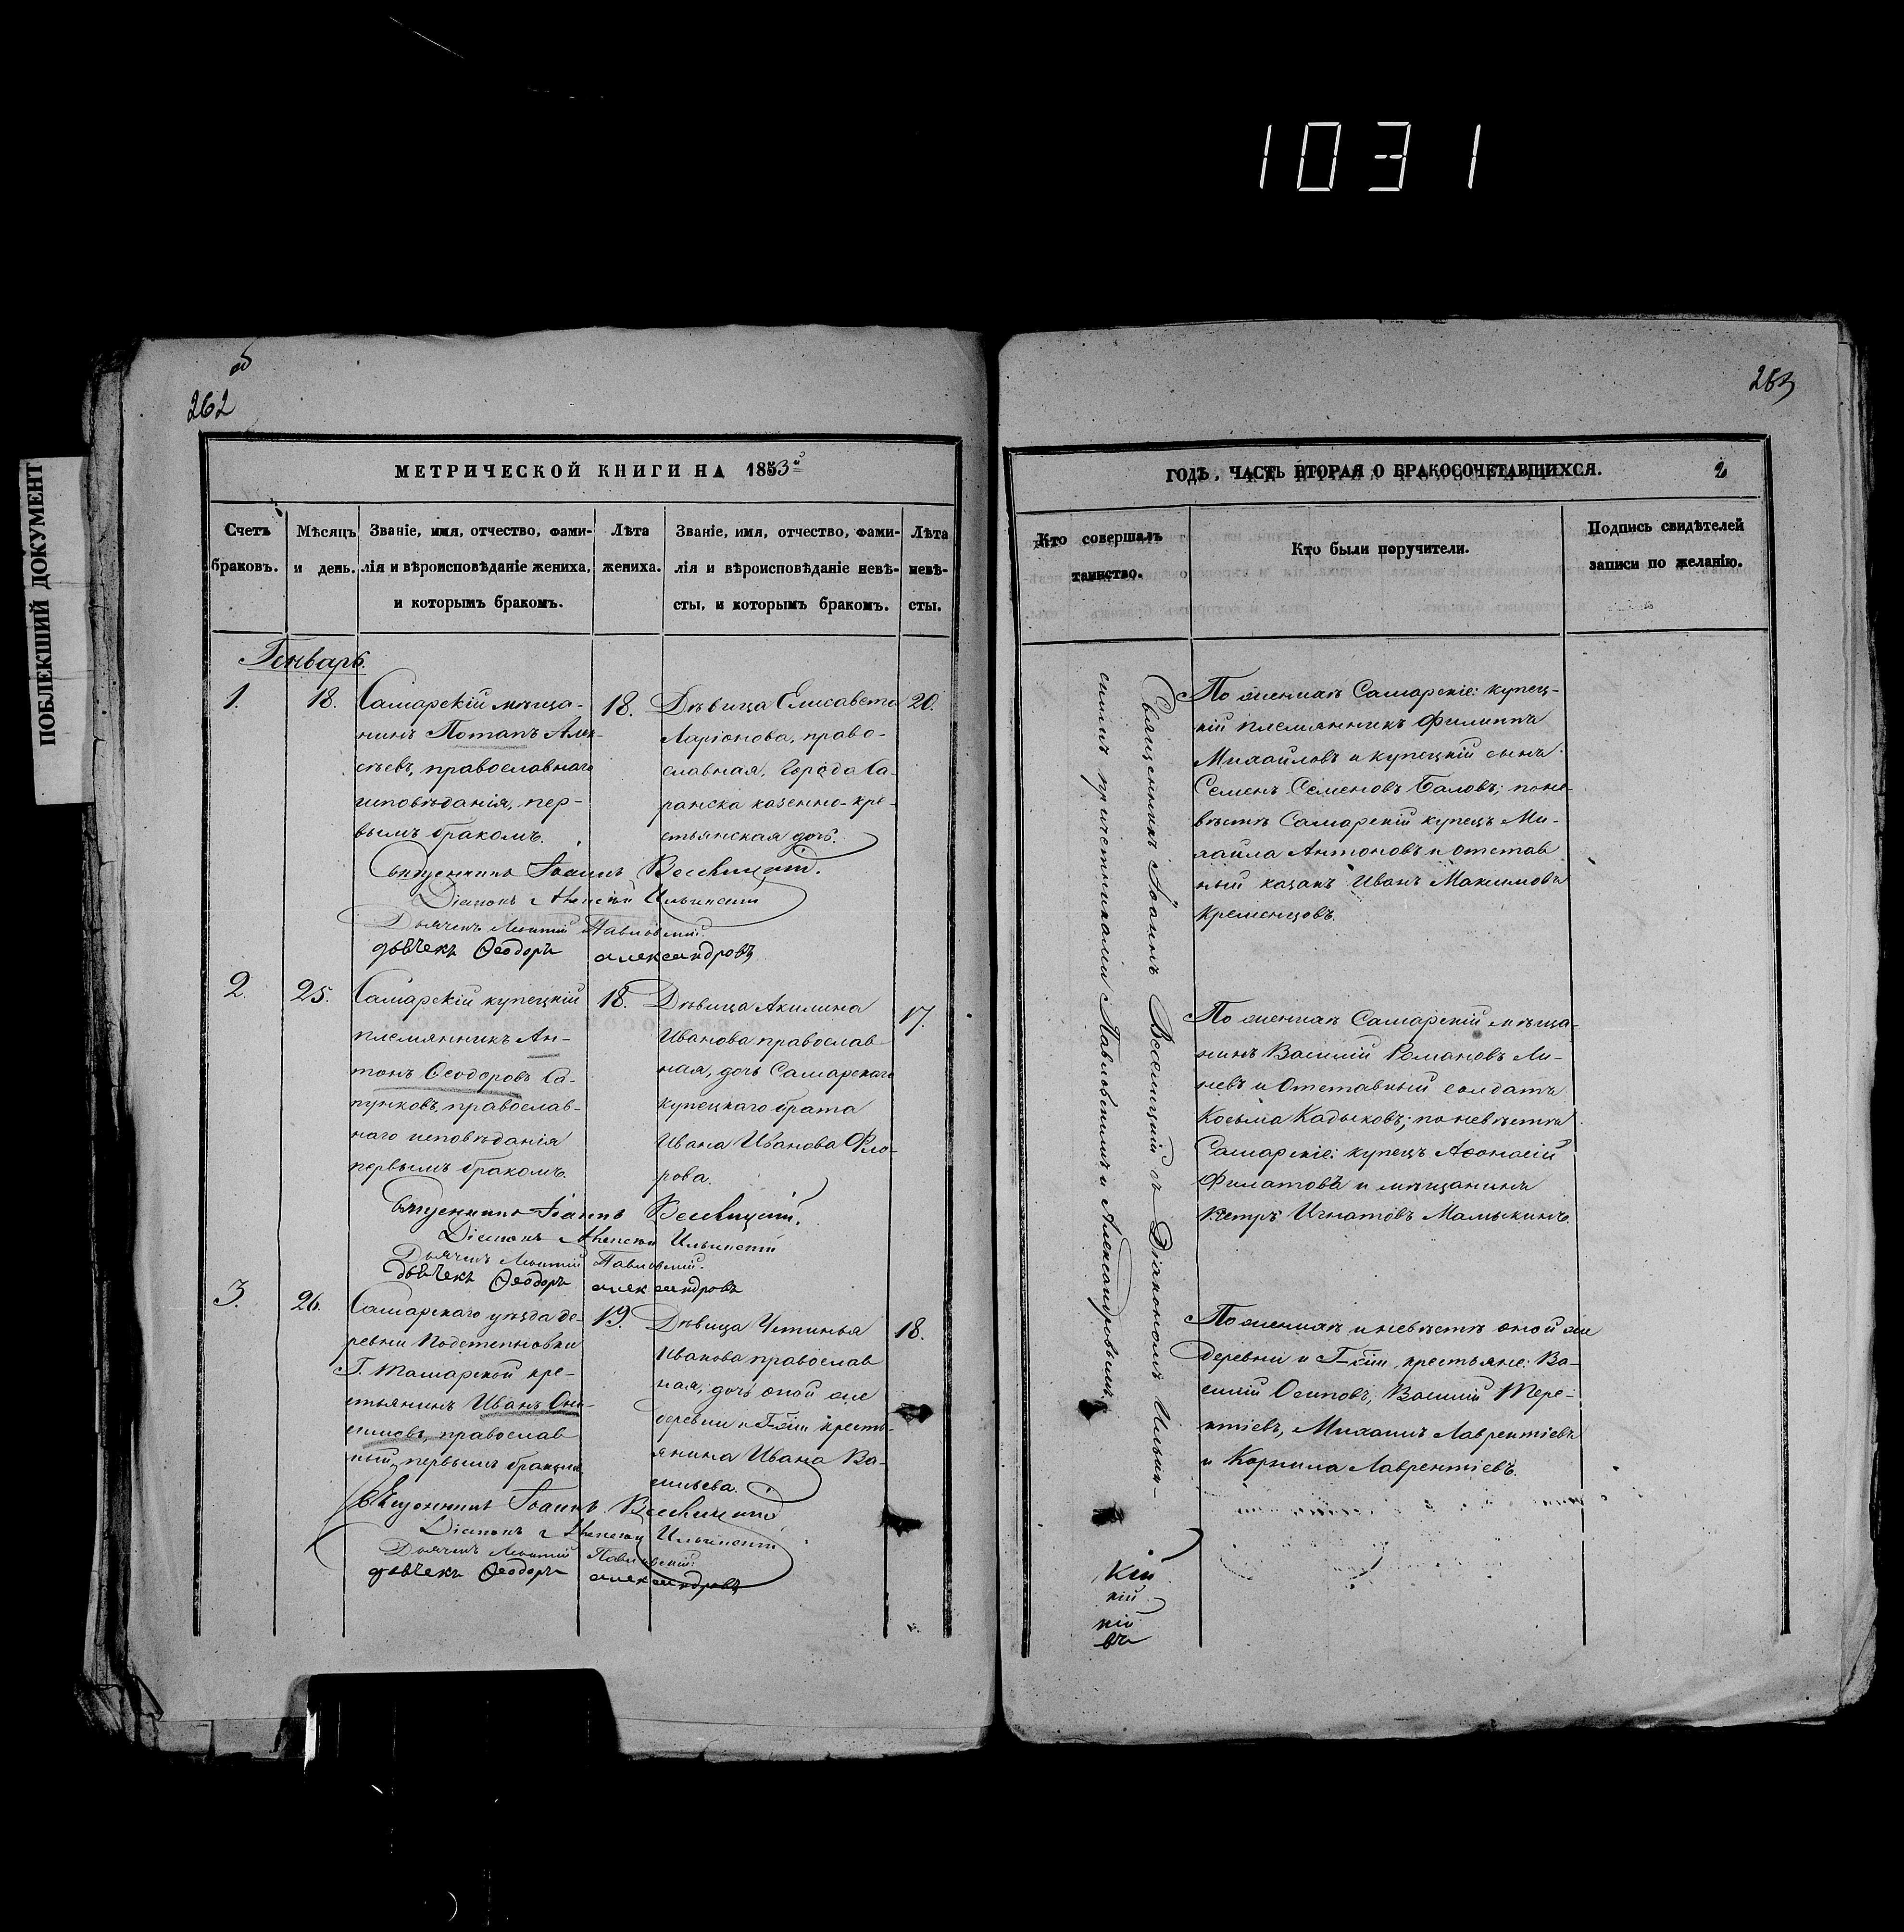 1031
ПОБЛЕКШИЙ ДОКУМЕНТ
262
263
МЕТРИЧЕСКОЙ КНИГИ НА 1853й
Счетъ браковъ.
Мѣсяцъ и день.
Званіе, имя, отчество, фами-
лія и вѣроисповѣданіе жениха,
и которымъ бракомъ.
Лѣта жениха.
Званіе, имя, отчество, фами-
лія и вѣроисповѣданіе невѣ-
сты, и которымъ бракомъ.
Лѣта невѣ-
сты.
Генварь.
1.
18.
Самарскій мѣща-
нинъ Потапъ Алек-
сѣевъ, православнаго
исповѣданія, пер-
вымъ бракомъ.
18.
Дѣвица Елисавета
Ларіонова, право-
славная, города Са-
ранска казенно-кре-
стьянская дочь.
20.
Священникъ Іоаннъ Веселицкій.
Діаконъ Алексей Ильинскій
Дьячекъ Леонтій Павловскій.
дьячекъ Ѳеодоръ александровъ
2.
25.
Самарскій купецкій
племянникъ Ан-
тонъ Ѳеодоровъ Са-
пунковъ, православ-
наго исповѣданія
первымъ бракомъ.
18.
Дѣвица Акилина
Иванова православ-
ная, дочь Самарскаго
купецкаго брата
Ивана Иванова Фло-
рова.
17.
Священникъ Іоаннъ Веселицкій.
Діаконъ Алексей Ильинскій
Дьячекъ Леонтій Павловскій.
дьячекъ Ѳеодоръ александровъ
3.
26.
Самарскаго уѣзда де-
ревни Подстепновки
Г. Самарской кре-
стьянинъ Иванъ Они-
симовъ, православ
ный, первымъ бракомъ
19.
Дѣвица Устинья
Иванова православ
ная, дочь оной же
деревни и Г-кіи кресть-
янина Ивана Ва-
сильева.
18.
Священникъ Іоаннъ Веселицкій
Діаконъ Алексей Ильинскій
Дьячекъ Леонтій Павловскій.
дьячекъ Ѳеодоръ александровъ
ГОДЪ, ЧАСТЬ ВТОРАЯ О БРАКОСОЧЕТАВШИХСЯ.
2
Кто совершалъ
таинство.
Кто были поручители.
Подпись свидѣтелей
записи по желанію.
Священникъ Іоаннъ Веселицкій съ Діакономъ Ильин-
скимъ причетниками Павловскимъ и Александровымъ.
По женихѣ Самарскіе: купец-
кій племянникъ Филиппъ
Михайловъ и купецкій сынъ
Семенъ Семеновъ Баловъ; поне-
вѣстѣ Самарскій купецъ Ми-
хайла Антоновъ и отстав
ный казакъ Иванъ Максимовъ
Кременцовъ.
По женихѣ Самарскій мѣща-
нинъ Василій Романовъ Ли-
невъ и Отставный солдатъ
Косьма Кадыковъ; по невѣстѣ
Самарскіе: купецъ Аѳонасій
Филатовъ и мѣщанинъ
Петръ Игнатовъ Малыкинъ.
По женихѣ и невѣстѣ оной же
деревни и Г-кіи крестьяне: Ва-
силій Осиповъ, Василій Тере-
нтіевъ, Михаилъ Лаврентіевъ
и Корнила Лаврентіевъ.
кій
кій
кій
въ